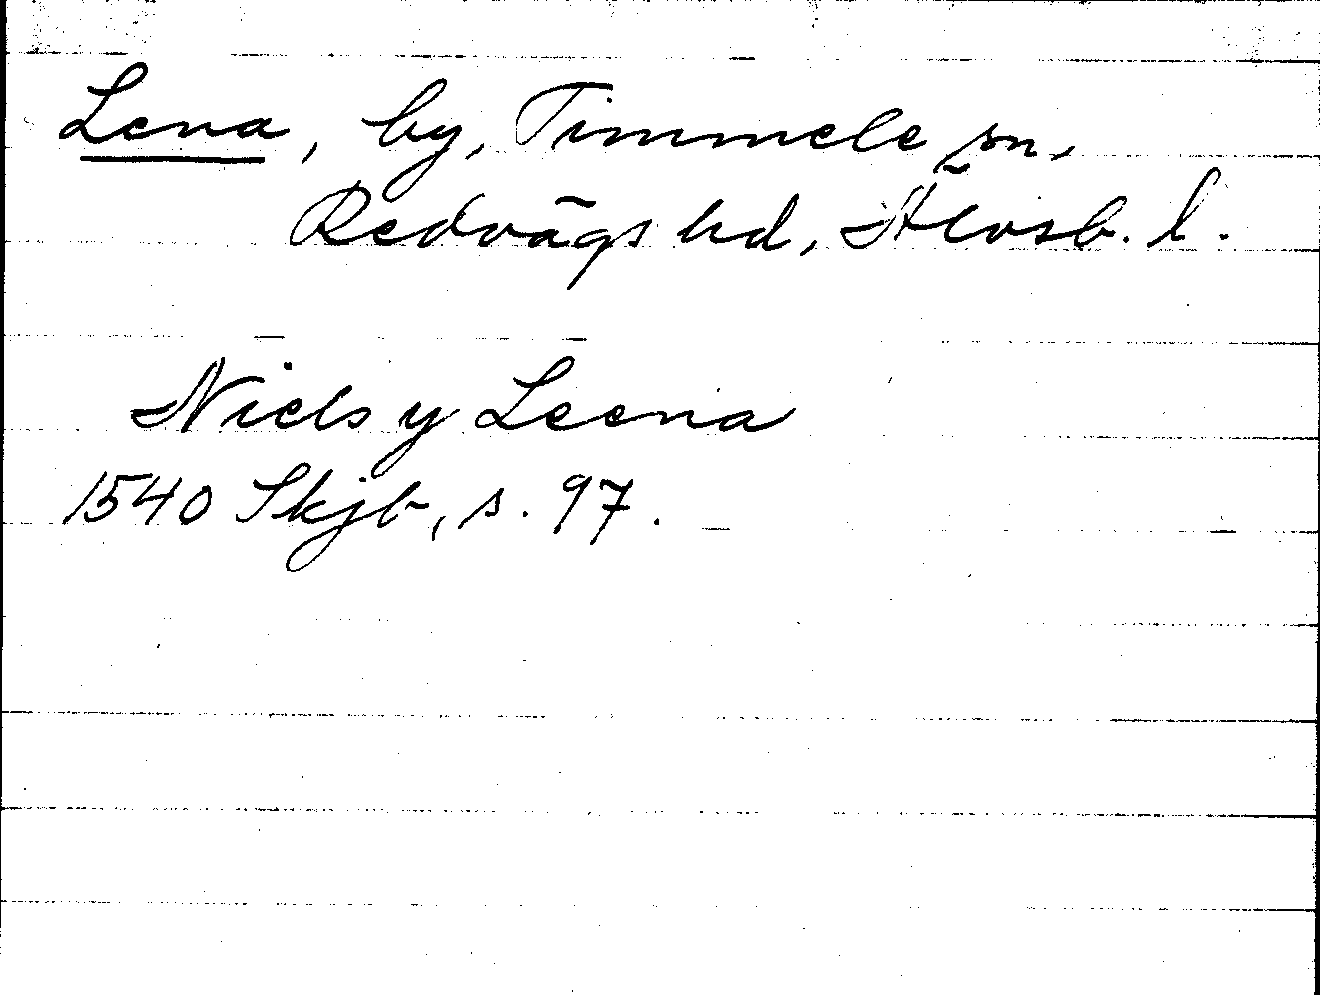 Lena, by, Timmele sn,
Redvägs hd, Älvsb. l.
Niels y Leena
1540 Skjb, s. 97.